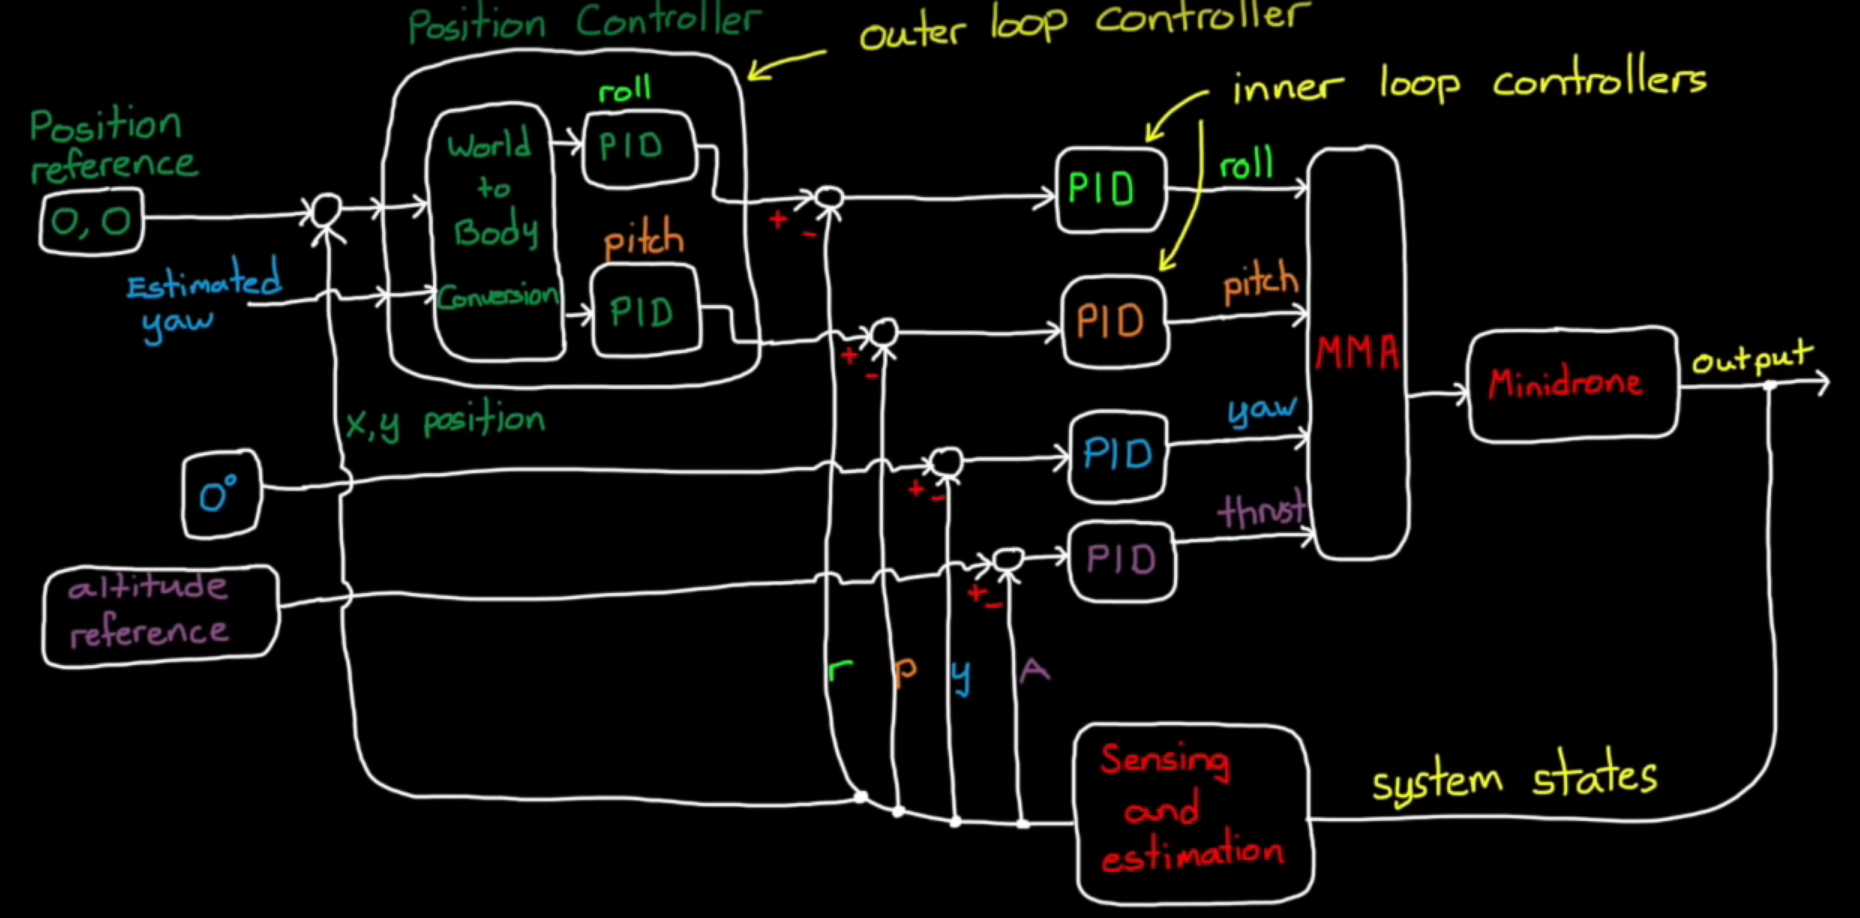 Position Controller
outer loop controller
inner loop controllers
Position
reference
0,0
Estimated
yaw
World
to
Body
Conversion
roll
PID
pitch
PID
+
-
PID
roll
+
-
PID
pitch
x,y position
0°
+
-
PID
yaw
altitude
reference
+
-
PID
thrust
MMA
Minidrone
output
r
p
y
A
Sensing
and
estimation
system states